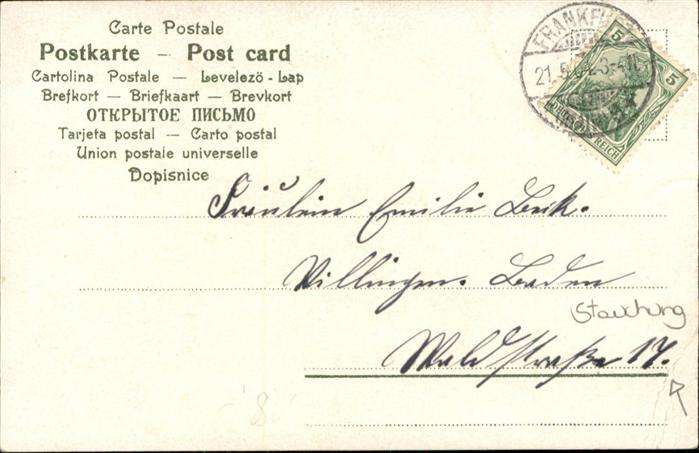 Carte Postale
Postkarte – Post card
Cartolina Postale — Levelezö-Lap
Brefkort — Briefkaart — Brevkort
ОТКРЫТОЕ ПИСЬМО
Tarjeta postal — Carto postal
Union postale universelle
Dopisnice
5
5
REICH
Fräulein Emilie Beck.
Villingen. Baden
Stauchung
Waldstraße 17.